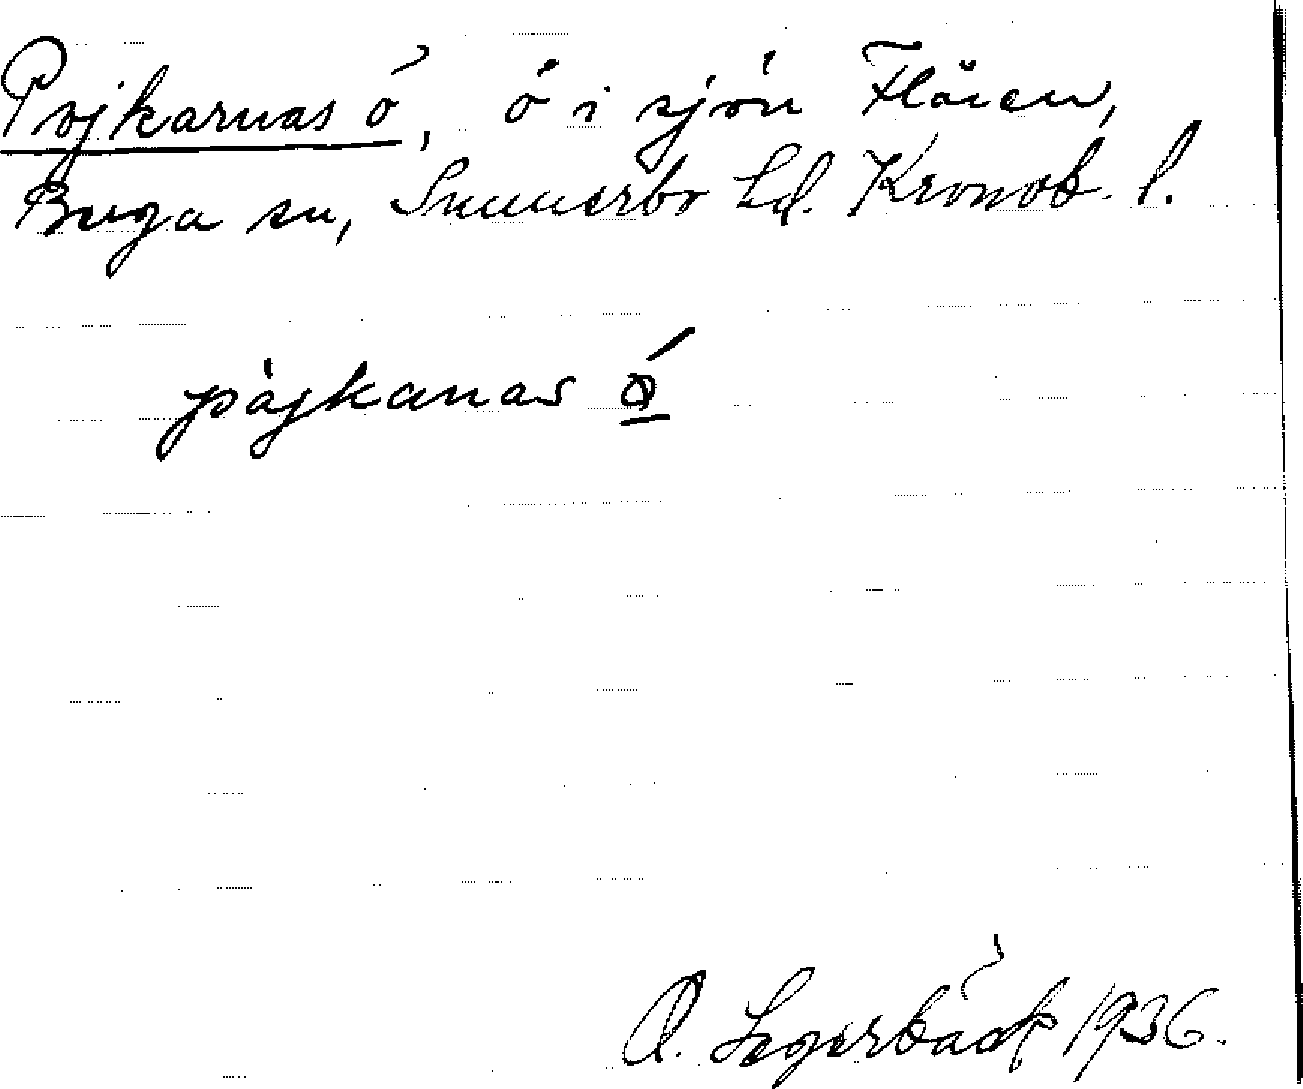 Pojkarnas ö, ö i sjön Flåren,
Berga sn, Sunnerbo hd. Kronob. l.
påjkanas ǿ
A. Segerbäck 1936.